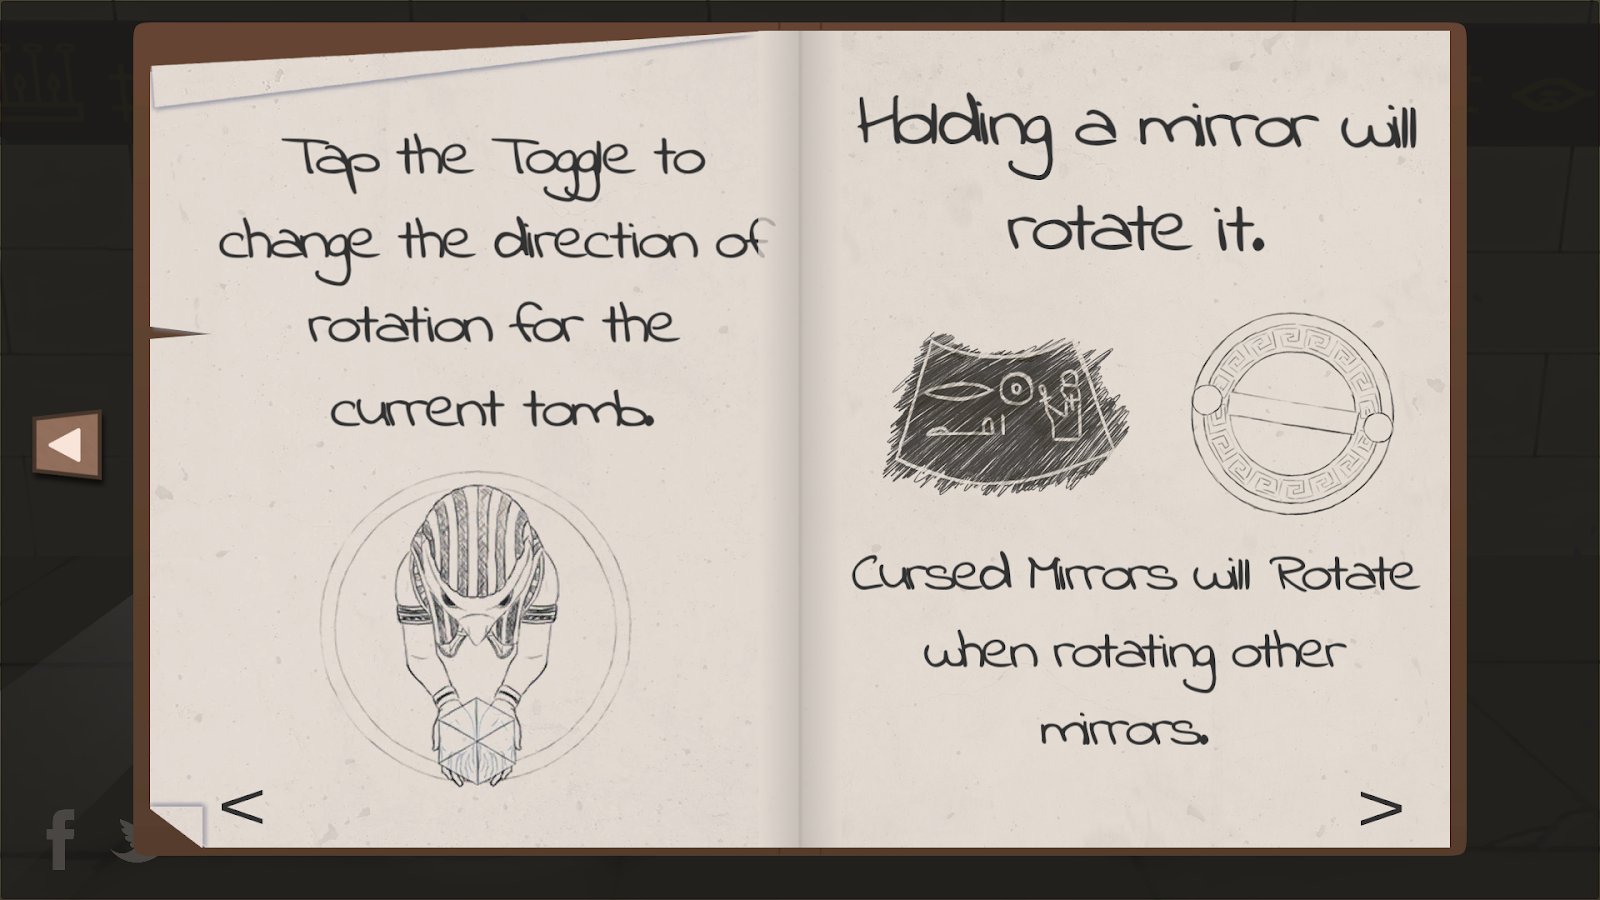 Tap the Toggle to
change the direction of
rotation for the
current tomb.
<
Holding a mirror will
rotate it.
Cursed Mirrors will Rotate
when rotating other
mirrors.
>